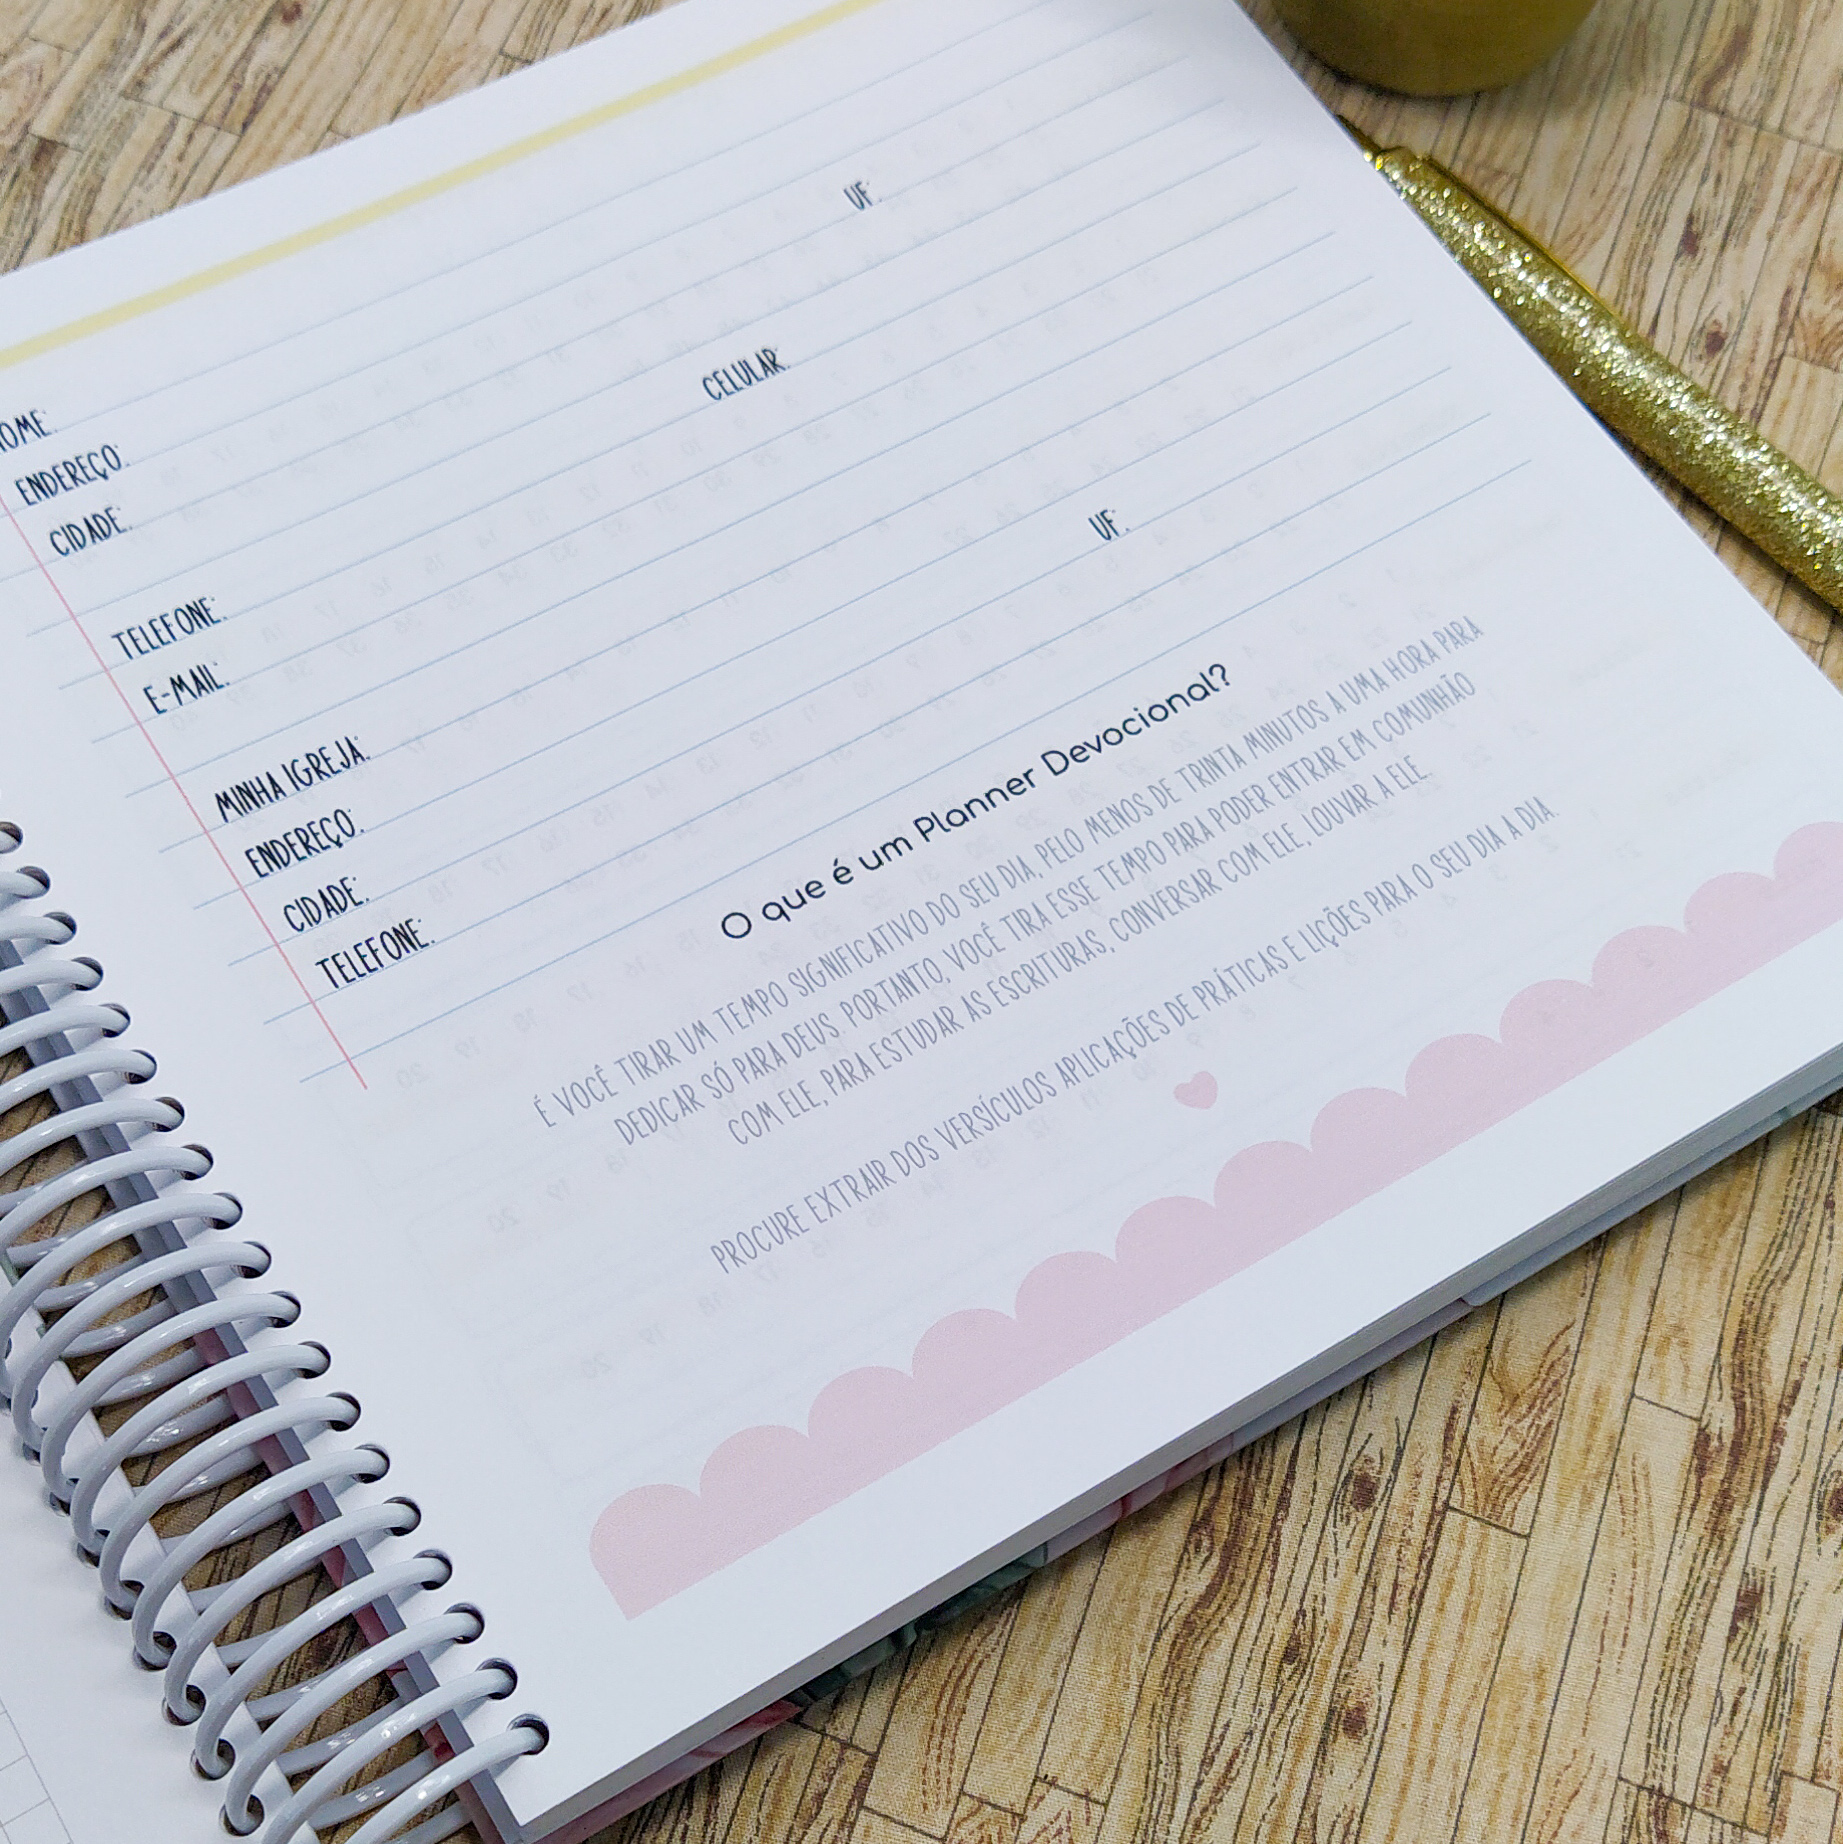 NOME:
ENDEREÇO:
CIDADE: UF:
TELEFONE: CELULAR:
E-MAIL:
MINHA IGREJA:
ENDEREÇO:
CIDADE: UF:
TELEFONE:
O que é um Planner Devocional?
É VOCÊ TIRAR UM TEMPO SIGNIFICATIVO DO SEU DIA, PELO MENOS DE TRINTA MINUTOS A UMA HORA PARA
DEDICAR SÓ PARA DEUS. PORTANTO, VOCÊ TIRA ESSE TEMPO PARA PODER ENTRAR EM COMUNHÃO
COM ELE, PARA ESTUDAR AS ESCRITURAS, CONVERSAR COM ELE, LOUVAR A ELE.
PROCURE EXTRAIR DOS VERSÍCULOS APLICAÇÕES DE PRÁTICAS E LIÇÕES PARA O SEU DIA A DIA.